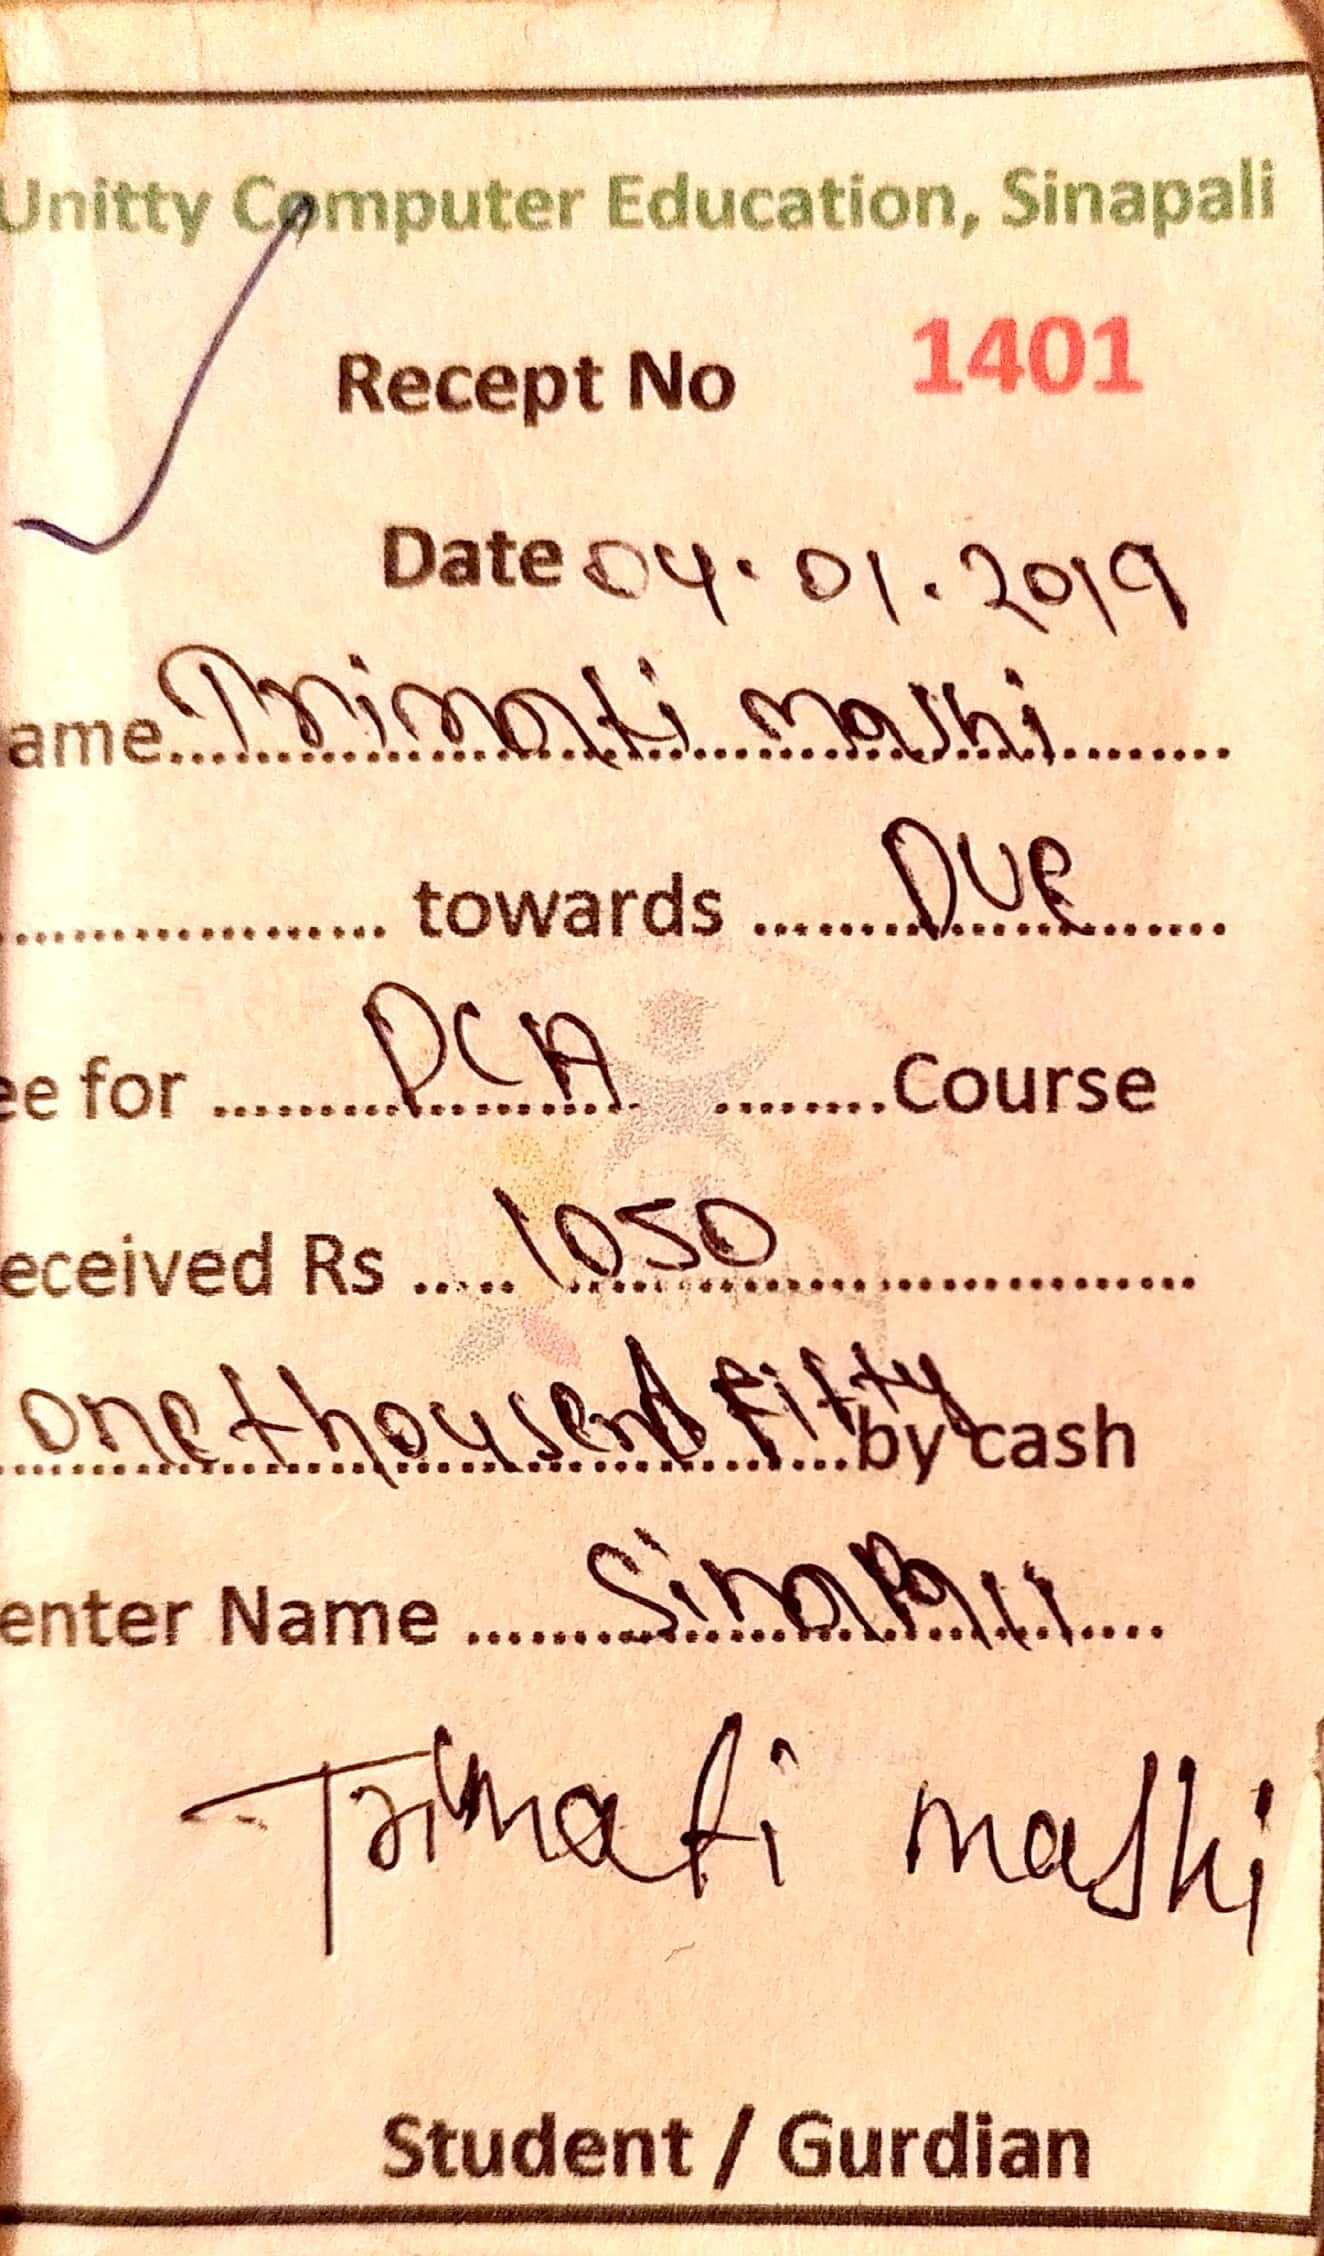 Unitty Computer Education, Sinapali
Recept No 1401
Date 04.01.2019
ame Trimati mashi
towards Due
ee for DCA Course
eceived Rs 1050
one thousend fifty by cash
enter Name Sinapali
Trimati mashi
Student / Gurdian